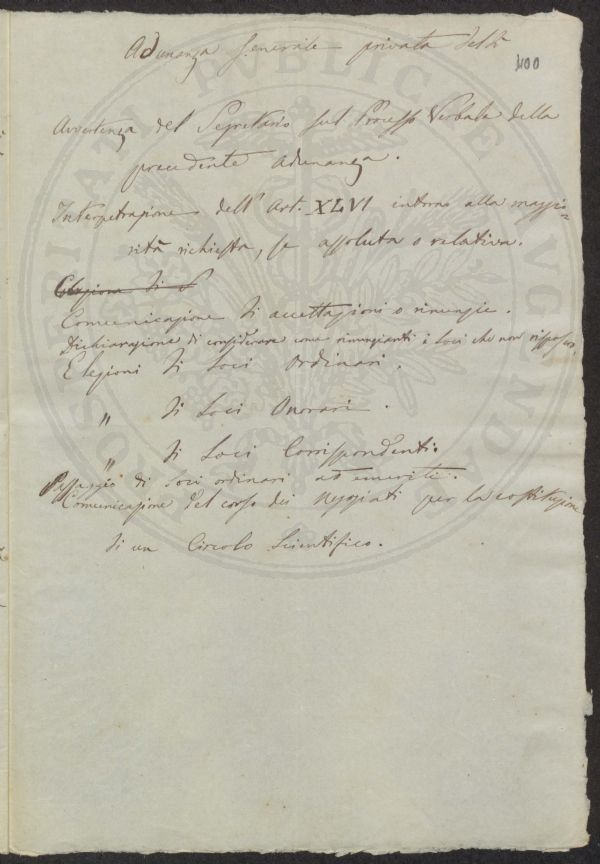 Adunanza Generale privata del dì
400
Avvertenza del Segretario sul Processo Verbale della
precedente Adunanza.
Interpetrazione dell'Art. XLVI intorno alla maggio=
rità richiesta, se assoluta o relativa.
Elezione di S
Comunicazione di accettazioni o rinunzie.
Dichiarazione di considerare come rinunzianti i Soci che non risposero
Elezioni di Soci Ordinari.
" di Soci Onorari.
" di Soci Corrispondenti.
Passaggio di Soci ordinari ad emeriti.
Comunicazione del corso dei Negoziati per la costituzione
di un Circolo Scientifico.
PROSPERITATI PVBLICAE AVGENDAE